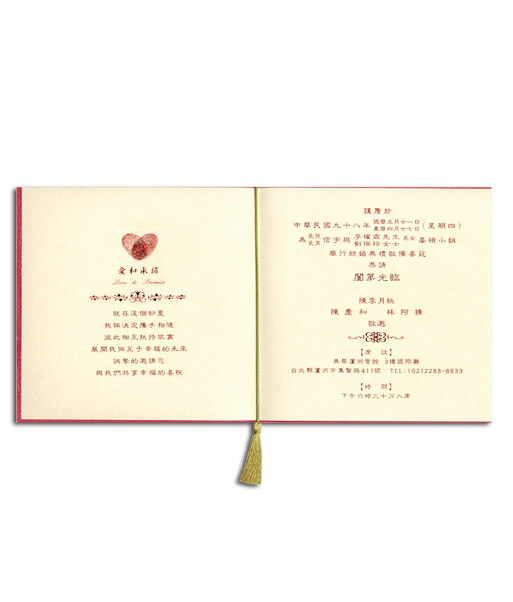 愛和承諾
Love & Promise
就在這個初夏
我倆決定攜手相隨
彼此相互扶持依靠
展開我倆互乎幸福的未來
誠摯的邀請您
與我們共享幸福的喜悅
謹詹於
中華民國九十八年 國曆五月廿一日 農曆四月廿七日 (星期四)
為 長孫 長男 信宇與 李耀霖先生 劉瑞玲女士 長女 姜禎小姐
舉行結婚典禮敬備喜筵
恭請
闔第光臨
陳李月桃
陳慶和 林阿積
敬邀
【席設】
典華蘆洲會館 3樓國際廳
台北縣蘆洲市集賢路411號 TEL:(02)2288-8833
【時間】
下午六時三十分入席